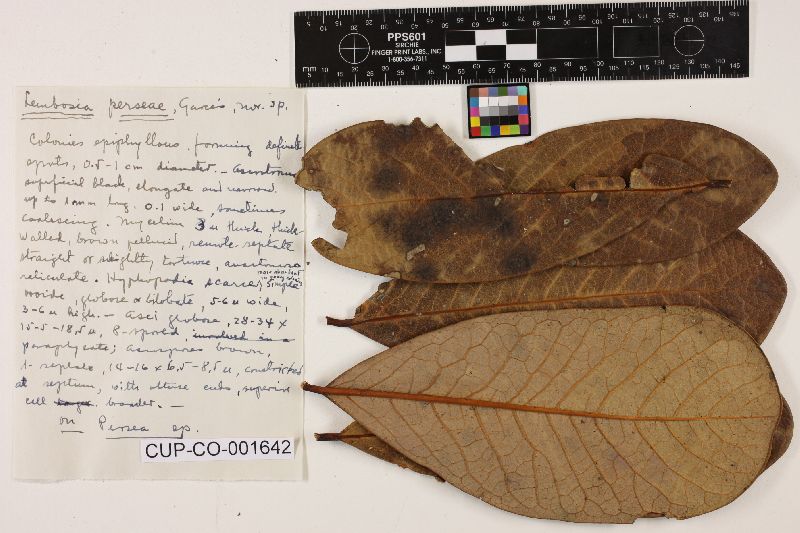 PPS601
SIRCHIE
FINGER PRINT LABS., INC
1-800-356-7311
mm
Lembosia perseae, Garcés, nov. sp.
Colonies epiphyllous forming definite
spots, 0.5-1 cm diameter. - Ascostromy
superficial black, elongate and narrow
up to 1 mm long. 0.1 wide, sometimes
coalescing. Mycelium 3 u thick, thick-
walled, brown pellucid, remote-septate
straight or slightly tortuose, anastomose-
reticulate. Hyphopodia scarce, simple
more abundant in young colonies
ovoide, globose or lobate, 5-6 u wide,
3-6 u high. - Asci globose, 28-34 x
15.5-18.5 u, 8-spored, involved in a
paraphysate; ascospores brown,
1-septate, 14-16 x 6.5-8.5 u, constricted
at septum, with obtuse ends, superior
cell broader. -
on Persea sp.
CUP-CO-001642